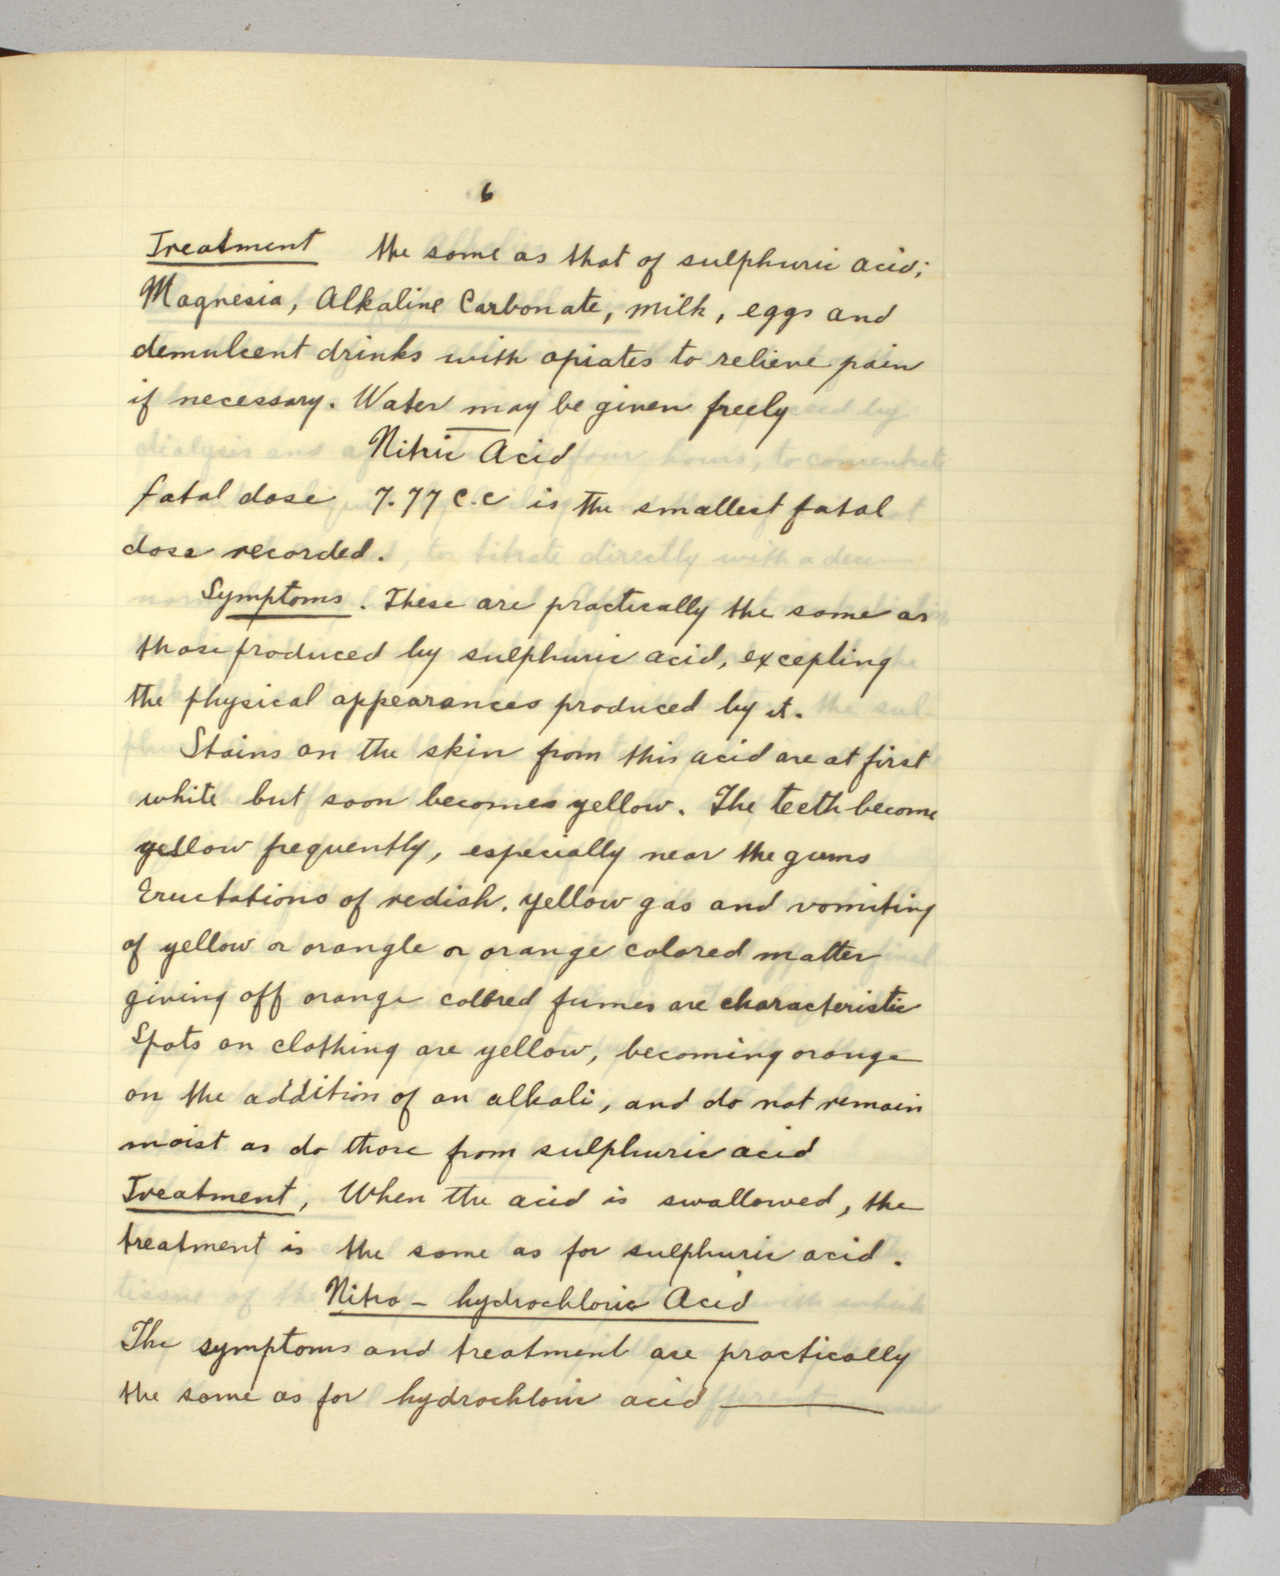 6
Treatment the same as that of sulphuric acid;
Magnesia, Alkaline Carbonate, milk, eggs and
demulcent drinks with opiates to relieve pain
if necessary. Water may be given freely
Nitric Acid
fatal dose 7.77 c.c is the smallest fatal
dose recorded.
Symptoms. These are practically the same as
those produced by sulphuric acid, excepting
the physical appearances produced by it.
Stains on the skin from this acid are at first
white but soon becomes yellow. The teeth become
yellow frequently, especially near the gums
Eructations of redish. yellow gas and vomiting
of yellow or orangle or orange colored matter
giving off orange colored fumes are characteristic
Spots on clothing are yellow, becoming orange
on the addition of an alkali, and do not remain
moist as do those from sulphuric acid
Treatment, When the acid is swallowed, the
treatment is the same as for sulphuric acid.
Nitro - hydrochloric Acid
The symptoms and treatment are practically
the same as for hydrochloric acid